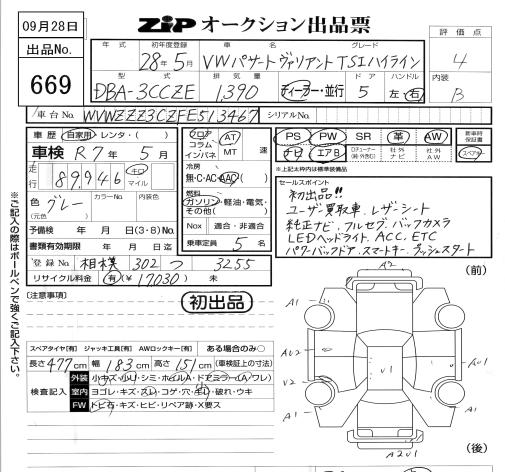 09月28日
ZIP オークション出品票
評価点
4
出品No.
669
年式 初年度登録 車名 グレード
28年5月 VWパサートヴァリアントTSIハイライン
型式 排気量 ドア ハンドル
DBA-3CCZE 1,390 ディーラー・並行 5 左・右
内装
B
車台No. WVWZZZ3CZFE513467 シリアルNo.
車歴 自家用・レンタ・( )
車検 R7年5月
走行 89,946 キロ マイル
色 グレー カラーNo. 内装色
(元色)
予備検 年 月 日(3・8)No.
書類有効期限 年 月 日迄
登録No. 相模 302 つ 3255
リサイクル料金 有(¥17030) 未
フロア コラム インパネ AT MT 速
冷房
無・C・AC・AAC
燃料
ガソリン・軽油・電気・その他( )
Nox 適合・非適合
乗車定員 5 名
PS PW SR 革 AW
ナビ エアB Dチューナー(純・外部) 社外ナビ 社外AW
新車時保証書
スペアキー
※上記太枠内は標準装備
セールスポイント
初出品!!
ユーザー買取車 レザーシート
純正ナビ フルセグ バックカメラ
LEDヘッドライト ACC, ETC
パワーバックドア スマートキー プッシュスタート
※ご記入の際はボールペンで強くご記入下さい。
(注意事項)
初出品
スペアタイヤ[有] ジャッキ工具[有] AWロックキー[有] ある場合のみ○
長さ477cm 幅183cm 高さ151cm (車検証上の寸法)
検査記入
外装 小キズ・小リ・シミ・ホイルA・ドアミラー(A/ワレ)
室内 ヨゴレ・キズ・スレ・コゲ・穴・キレ・破れ・ウキ
FW トビ石・キズ・ヒビ・リペア跡・X要ス
(前)
A2
A1
A1
AU2
V1
AU1
V2
A1
A1
A2U1
(後)